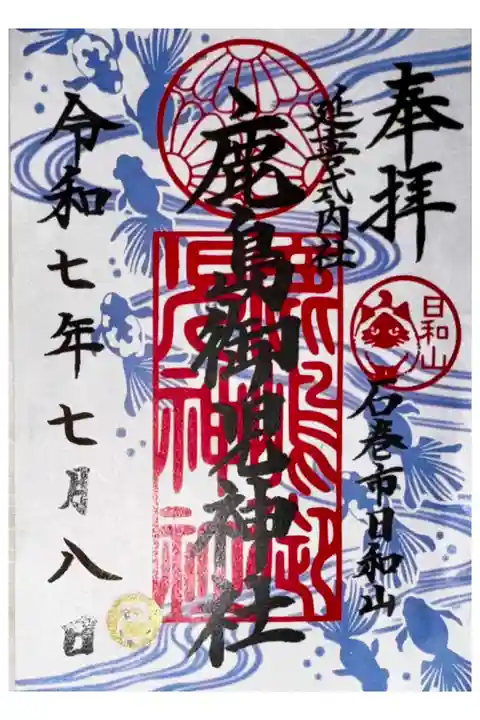 奉拝
延喜式内社
日和山
石巻市日和山
鹿島御児神社
鹿島御児神社
令和七年七月八日